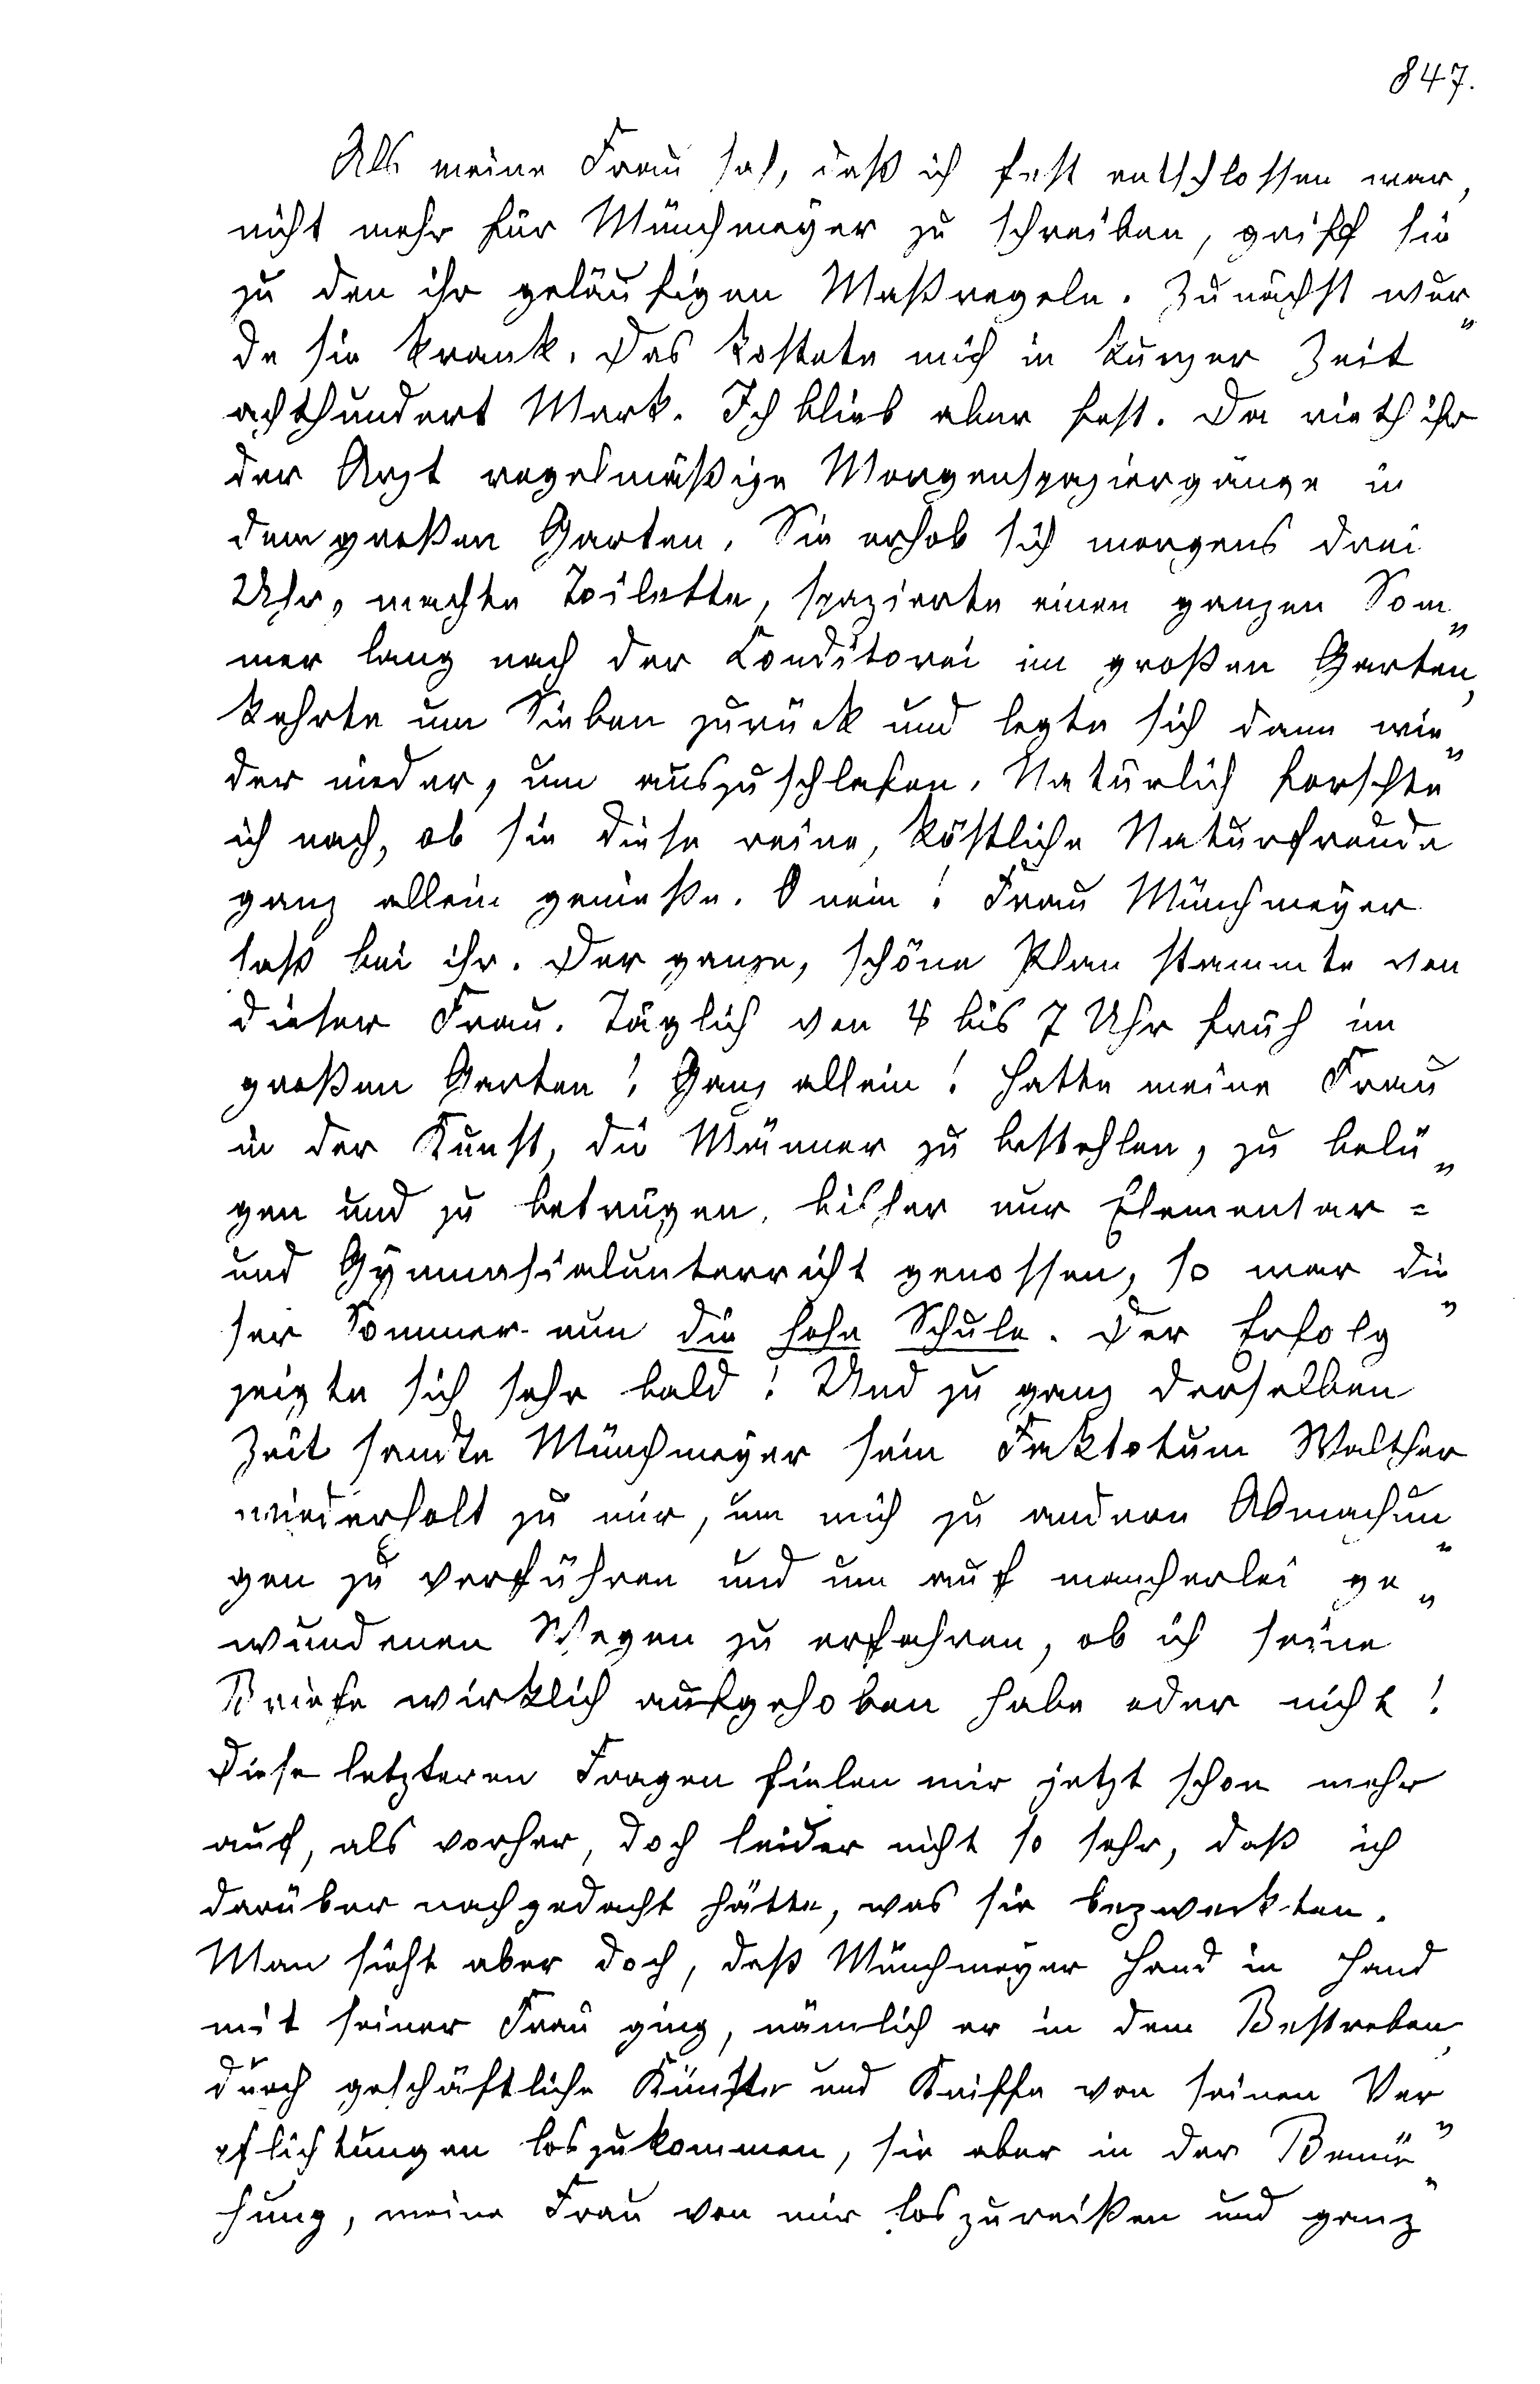 847.
Als meine Frau sah, daß ich fest entschlossen war,
nicht mehr für Münchmeyer zu schreiben, griff sie
zu den ihr geläufigen Maßregeln. Zunächst wur„
de sie krank. Das kostete mich in kurzer Zeit
achthundert Mark. Ich blieb aber fest. Da rieth ihr
der Arzt regelmäßige Morgenspaziergänge in
dem großen Garten. Sie erhob sich morgens drei
Uhr, machte Toilette, spazierte einen ganzen Som„
mer lang nach der Conditorei im großen Garten,
kehrte um Sieben zurück und legte sich dann wie„
der nieder, um auszuschlafen. Natürlich forschte
ich nach, ob sie diese reine, köstliche Naturfreude
ganz allein genieße. O nein! Frau Münchmeyer
saß bei ihr. Der ganze, schöne Plan stammte von
dieser Frau. Täglich von 4 bis 7 Uhr früh im
großen Garten! Ganz allein! Hatte meine Frau
in der Kunst, die Männer zu bestehlen, zu belü„
gen und zu betrügen, bisher nur Elementar=
und Gymnasialunterricht genossen, so war die„
ser Sommer nun die hohe Schule. Der Erfolg
zeigte sich sehr bald! Und zu ganz derselben
Zeit sandte Münchmeyer sein Faktotum Walther
wiederholt zu mir, um mich zu andern Abmachun„
gen zu verführen und um auf mancherlei ge„
wundenen Wegen zu erfahren, ob ich seine
Briefe wirklich aufgehoben habe oder nicht!
Diese letzteren Fragen fielen mir jetzt schon mehr
auf, als vorher, doch leider nicht so sehr, daß ich
darüber nachgedacht hätte, was sie bezweckten.
Man sieht aber doch, daß Münchmeyer Hand in Hand
mit seiner Frau ging, nämlich er in dem Bestreben,
durch geschäftliche Künste und Kniffe von seinen Ver„
pflichtungen loszukommen, sie aber in der Bemü„
hung, meine Frau von mir loszureißen und ganz